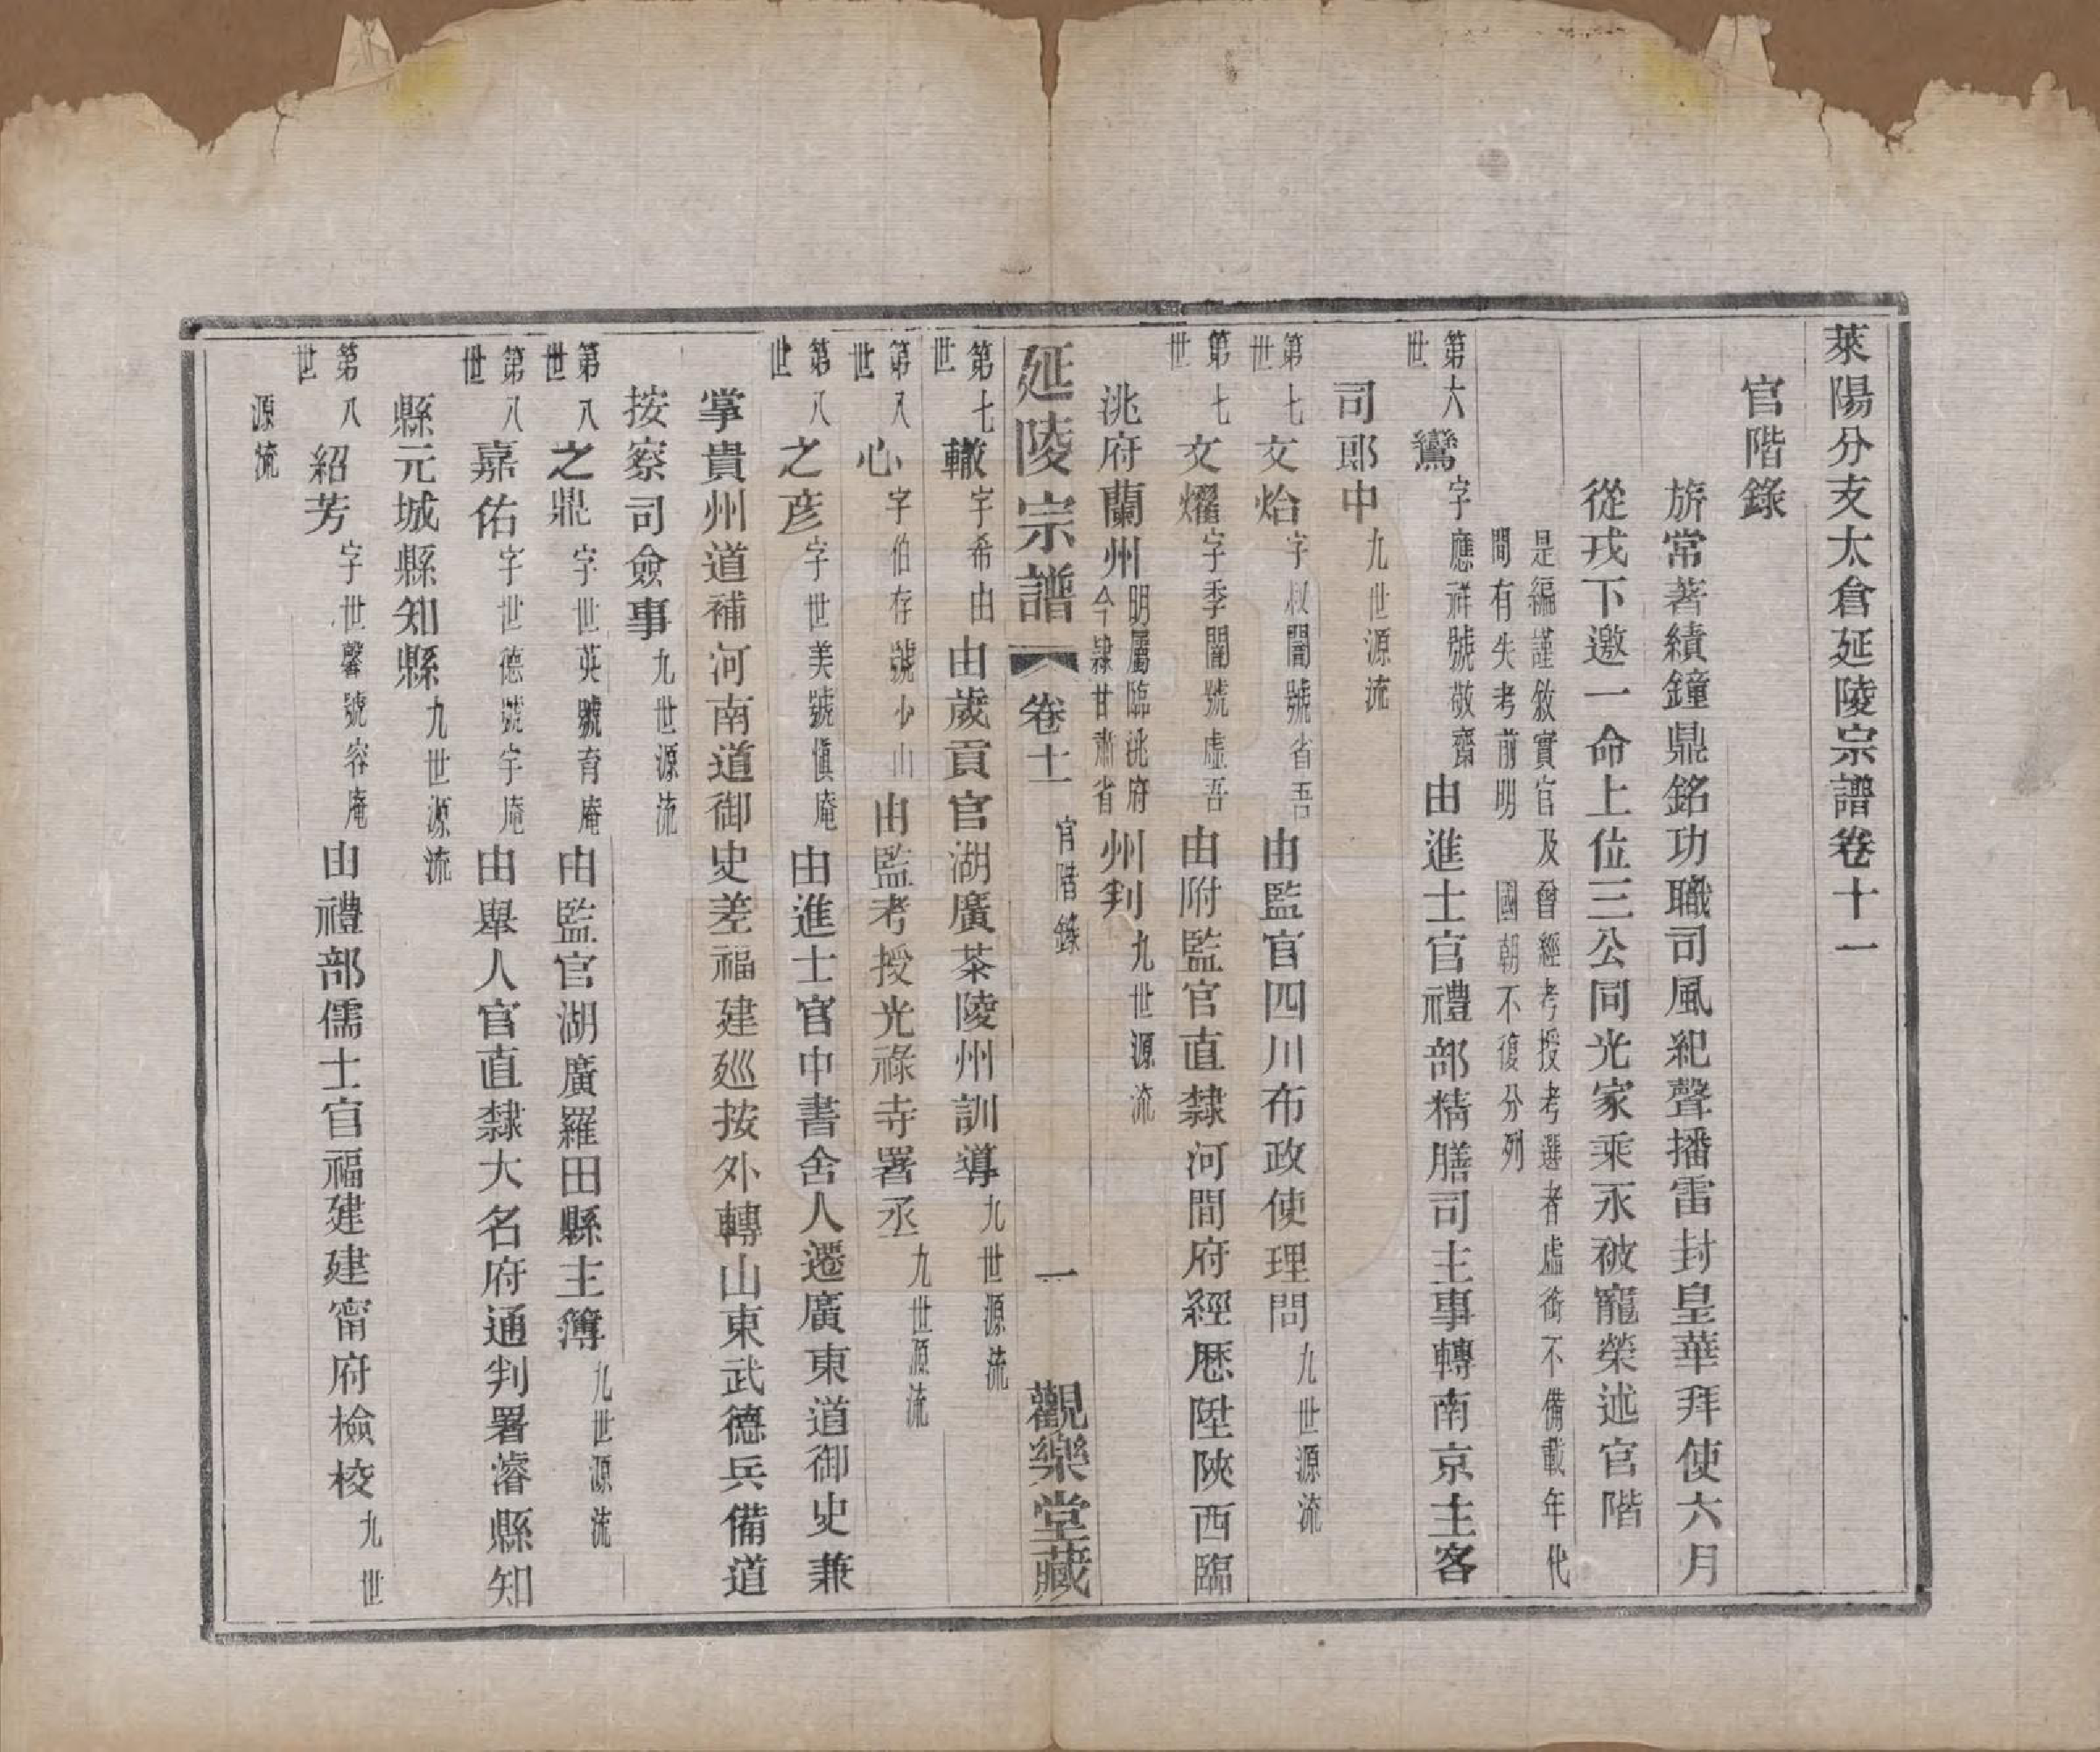 萊陽分支太倉延陵宗譜卷十一
官階錄
旂常著績鐘鼎銘功職司風紀聲播雷封皇華拜使六月
從戎下邀一命上位三公同光家乘永被寵榮述官階
是編謹敘實官及曾經考授考選者虛銜不備載年代
間有失考前明 國朝不復分列
第六世 鸞 字應祥號敬齋 由進士官禮部精膳司主事轉南京主客
司郎中 九世源流
第七世 文炲 字叔闇號省吾 由監官四川布政使理問 九世源流
第七世 文燿 字季闇號虛吾 由附監官直隸河間府經歷陞陝西臨
洮府蘭州 明屬臨洮府今隸甘肅省 州判 九世源流
延陵宗譜 卷十一 官階錄 一 觀樂堂藏
第七世 轍 字希由 由歲貢官湖廣茶陵州訓導 九世源流
第八世 心 字伯存號少山 由監考授光祿寺署丞 九世源流
第八世 之彦 字世美號慎庵 由進士官中書舍人遷廣東道御史兼
掌貴州道補河南道御史差福建廵按外轉山東武德兵備道
按察司僉事 九世源流
第八世 之鼎 字世英號育庵 由監官湖廣羅田縣主簿 九世源流
第八世 嘉佑 字世德號宇庵 由舉人官直隸大名府通判署濬縣知
縣元城縣知縣 九世源流
第八世 紹芳 字世馨號容庵 由禮部儒士官福建建甯府檢校 九世
源流